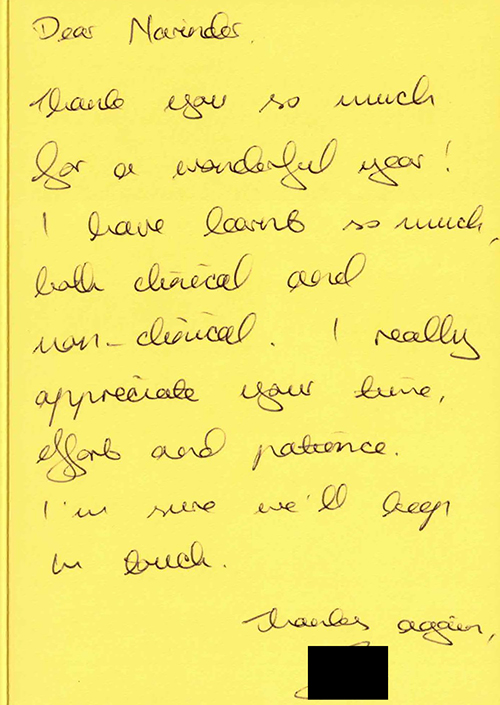 Dear Narinder,
Thank you so much
for a wonderful year!
I have learnt so much,
both clinical and
non-clinical. I really
appreciate your time,
effort and patience.
I'm sure we'll keep
in touch.
Thanks again,